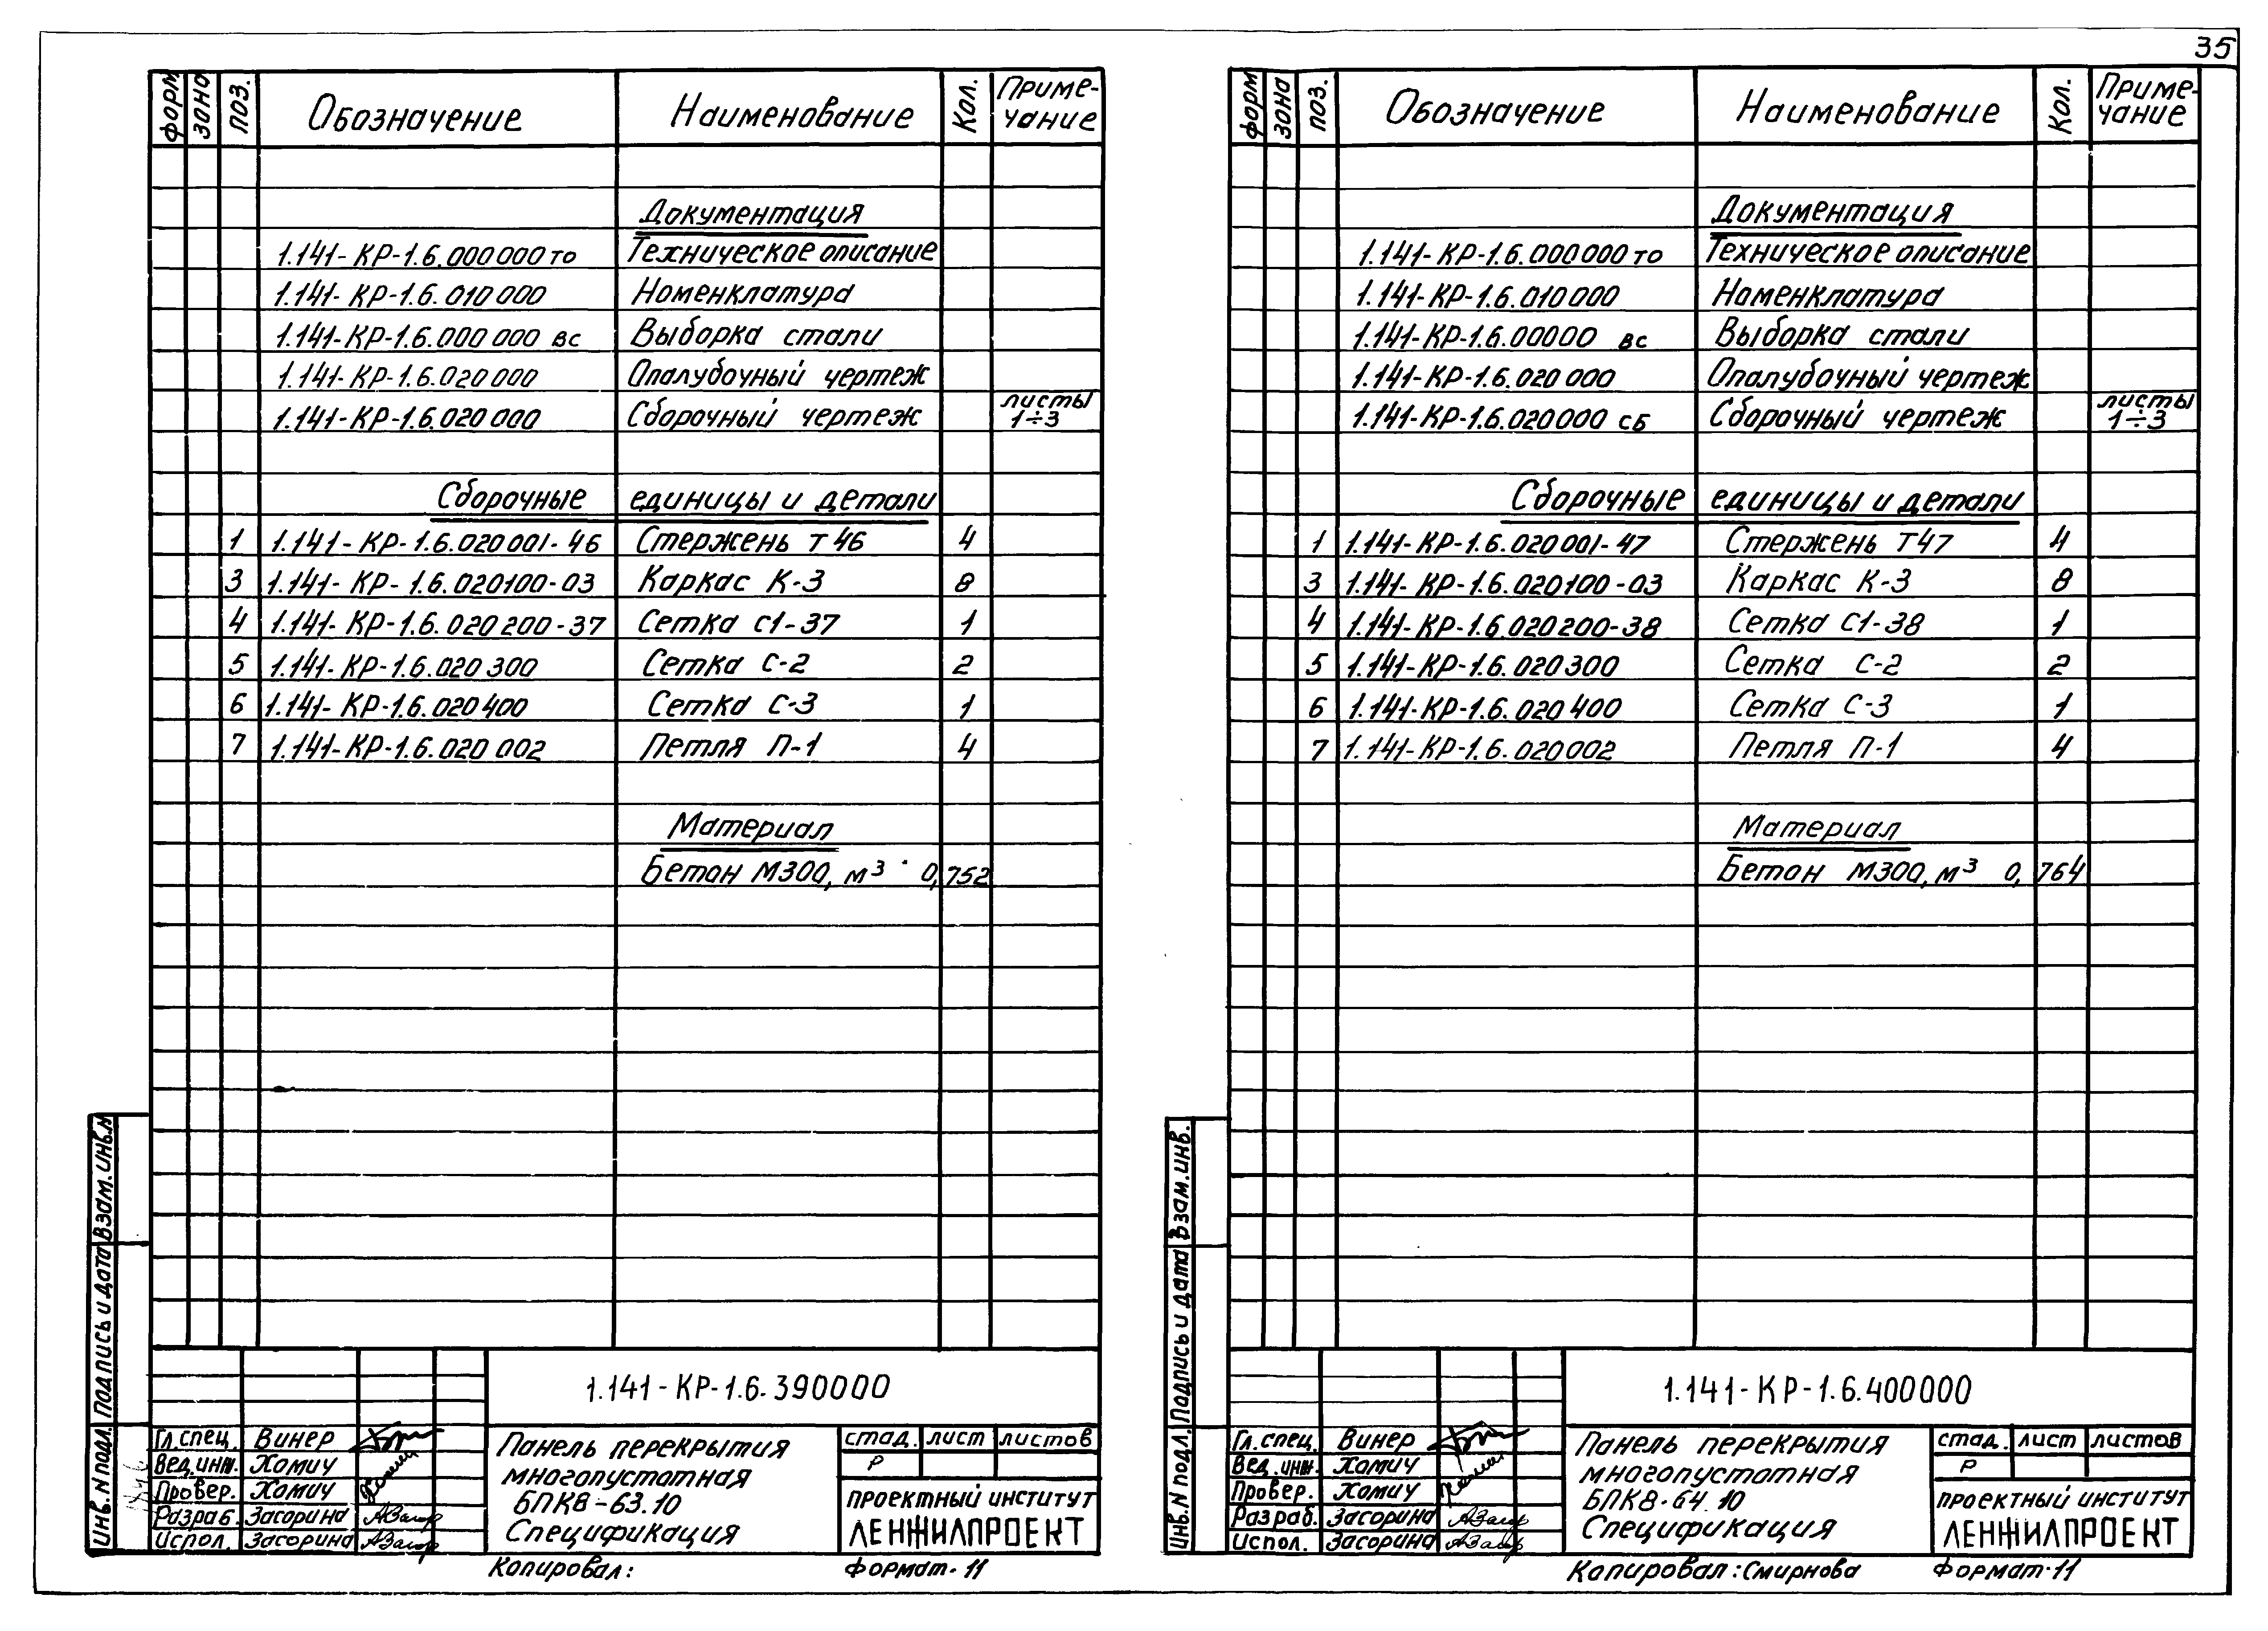 35
форм зона поз. Обозначение Наименование Кол. Приме-
чание
Документация
1.141-КР-1.6.000000 то Техническое описание
1.141-КР-1.6.010000 Номенклатура
1.141-КР-1.6.000000 вс Выборка стали
1.141-КР-1.6.020000 Опалубочный чертеж
1.141-КР-1.6.020000 Сборочный чертеж листы
1÷3
Сборочные единицы и детали
1 1.141-КР-1.6.020001-46 Стержень т46 4
3 1.141-КР-1.6.020100-03 Каркас К-3 8
4 1.141-КР-1.6.020200-37 Сетка с1-37 1
5 1.141-КР-1.6.020300 Сетка С-2 2
6 1.141-КР-1.6.020400 Сетка С-3 1
7 1.141-КР-1.6.020002 Петля П-1 4
Материал
Бетон М300, м³ 0,752
Инв. N подл. Подпись и дата Взам. инв. N
1.141-КР-1.6.390000
Гл. спец. Винер
Вед. инж. Хамич
Провер. Хамич
Разраб. Засорина
Испол. Засорина
Панель перекрытия
многопустотная
БПК8-63.10
Спецификация
стад. лист листов
Р
ПРОЕКТНЫЙ ИНСТИТУТ
ЛЕНЖИЛПРОЕКТ
Копировал: Формат-11
форм зона поз. Обозначение Наименование Кол. Приме-
чание
Документация
1.141-КР-1.6.000000 то Техническое описание
1.141-КР-1.6.010000 Номенклатура
1.141-КР-1.6.00000 вс Выборка стали
1.141-КР-1.6.020000 Опалубочный чертеж
1.141-КР-1.6.020000 сб Сборочный чертеж листы
1÷3
Сборочные единицы и детали
1 1.141-КР-1.6.020001-47 Стержень Т47 4
3 1.141-КР-1.6.020100-03 Каркас К-3 8
4 1.141-КР-1.6.020200-38 Сетка С1-38 1
5 1.141-КР-1.6.020300 Сетка С-2 2
6 1.141-КР-1.6.020400 Сетка С-3 1
7 1.141-КР-1.6.020002 Петля П-1 4
Материал
Бетон М300, м³ 0,764
Инв. N подл. Подпись и дата Взам. инв.
1.141-КР-1.6.400000
Гл. спец. Винер
Вед. инж. Хамич
Провер. Хамич
Разраб. Засорина
Испол. Засорина
Панель перекрытия
многопустотная
БПК8-64.10
Спецификация
стад. лист листов
Р
ПРОЕКТНЫЙ ИНСТИТУТ
ЛЕНЖИЛПРОЕКТ
Копировал: Смирнова Формат-11